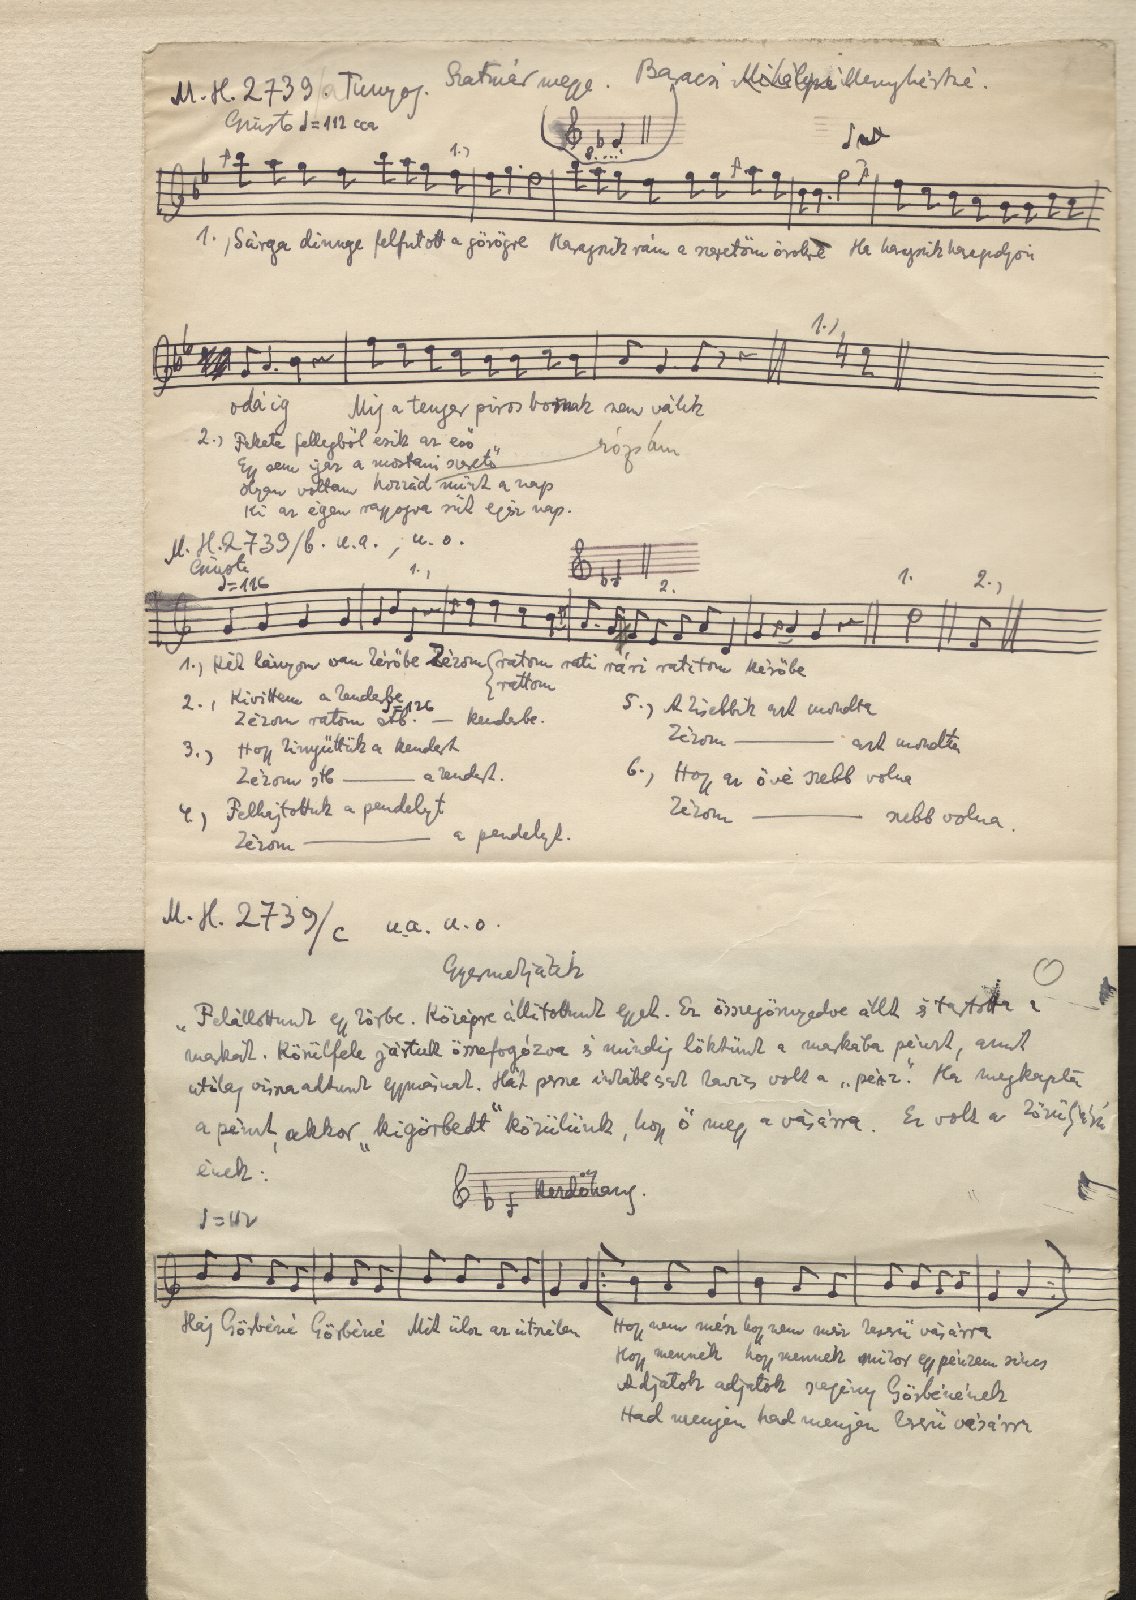 M. H. 2739/a Tunyog. Szatmár megye. Baracsi Menyhértné.
Giusto ♩=112 cca
1.,
8.....
1., Sárga dinnye felfutott a görögre Haragszik rám a szeretőm örökre Ha haragszik haragudjon
1.,
odáig Mig a tenger piros bornak nem válik
2., Fekete fellegből esik az eső rózsám
Egy sem igaz a mostani szerető
Olyan voltam hozzád mint a nap
Ki az égen ragyogva süt egész nap.
M. H. 2739/b. u.a., u.o.
Giusto
♩=116
1., 2. 1. 2.,
1., Két lányom van Zérőbe Zérom { ratom rati rári ratitom Kérőbe
{ rattom
2., Kivittem a kenderbe
♩=126
Zérom ratom stb. — kenderbe.
3., Hogy kinyüttük a kendert
Zérom stb —— a kendert.
4., Felhajtottuk a pendelyt
Zérom —— a pendelyt.
5., A kisebbik azt mondta
Zérom —— azt mondta
6., Hogy az övé szebb volna
Zérom —— szebb volna.
M. H. 2739/c u.a. u.o.
Gyermekjáték
"Felállottunk egy körbe. Középre állítottunk egyet. Ez összegörnyedve állt s tartotta a
markát. Körülfele jártunk összefogózva s mindig löktünk a markába pénzt, amit
utólag visszaadtunk egymásnak. Hát persze inkább csak kavics volt a "pénz". Ha megkapta
a pénzt, akkor "kigörbedt" közülünk, hogy ő megy a vásárra. Ez volt a
ének:
Kezdőhang.
♩=112
Háj Görbéné Görbéné Mit ülsz az útszélen Hogy nem mész hogy nem mész Kassú vásárra
Hogy mennék hogy mennék mikor egy pénzem sincs
Adjatok adjatok szegény Görbénének
Had menjen had menjen Kassú vásárra